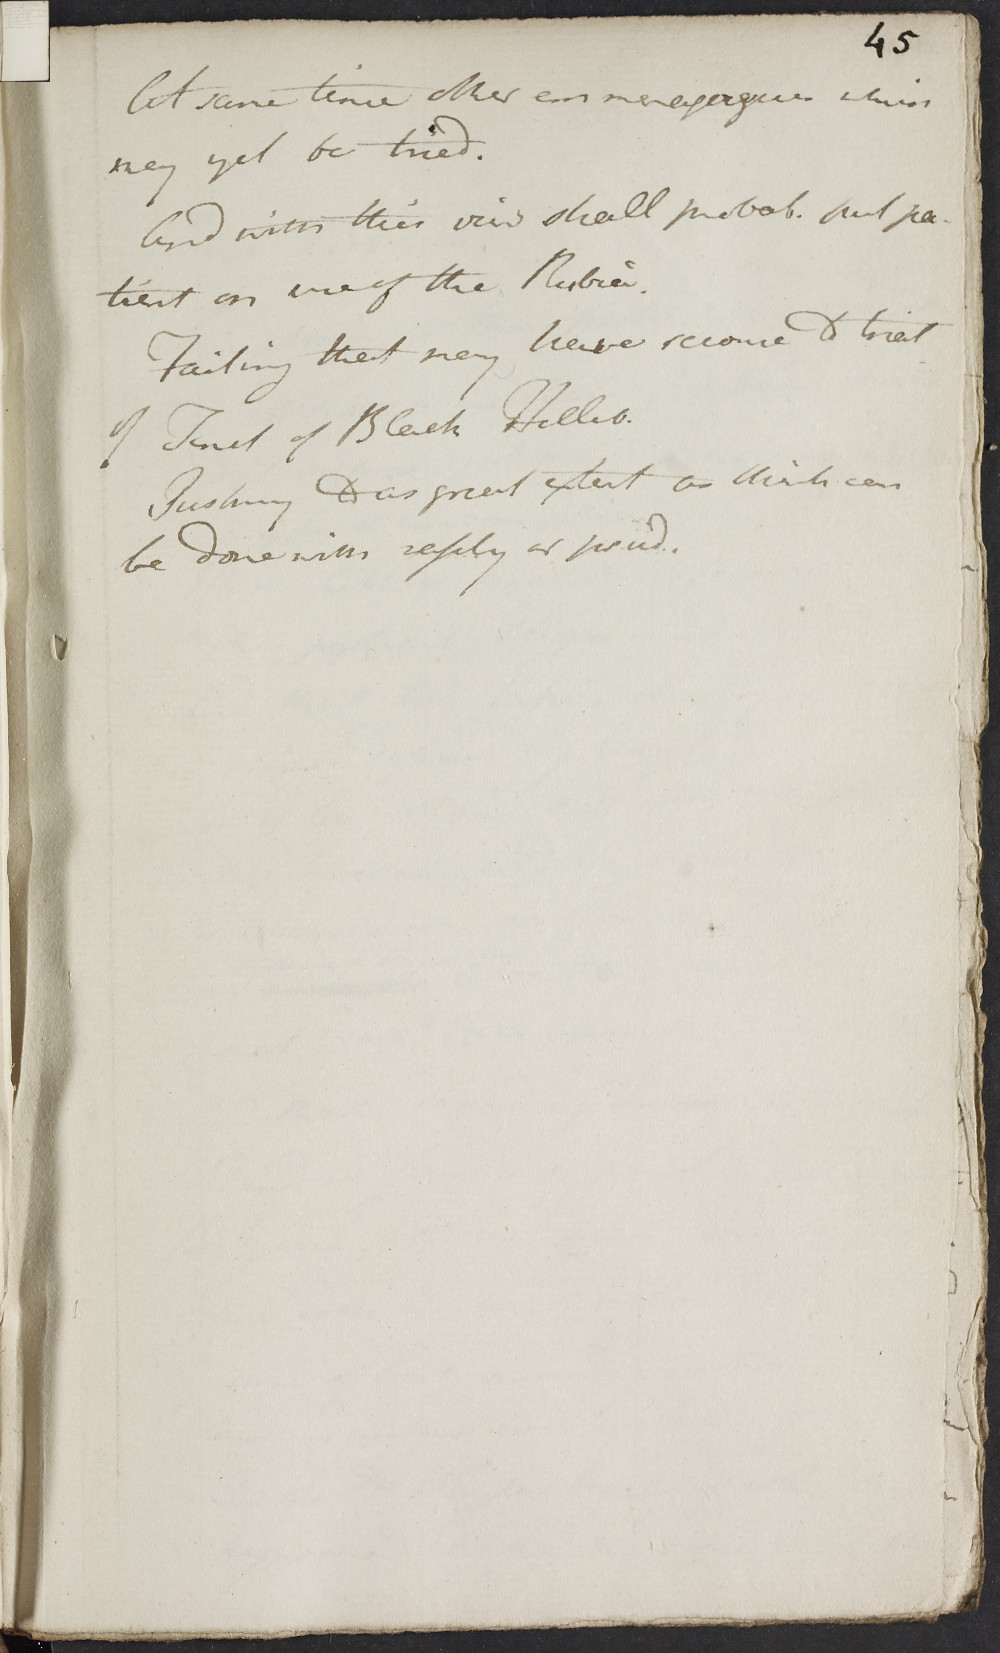 45
At same time other emmenagogues which
may yet be tried.
And with this view shall probab. put pa-
tient on use of the Rubia.
Failing that may have recourse to trial
of Tinct of Black Helleb.
Pushing to as great extent as think can
be done with safety or prud.